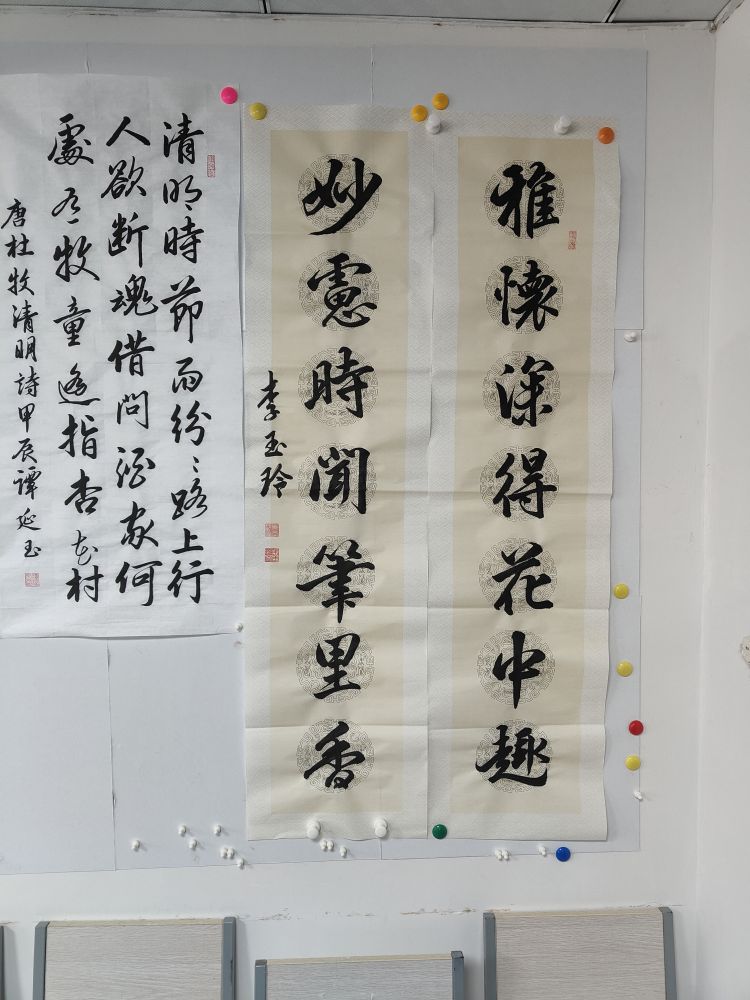 雅懷深得花中趣
妙慮時聞筆里香
李玉玲
清明時節雨紛々路上行
人欲断魂借问酒家何
處有牧童遥指杏花村
唐杜牧清明詩甲辰譚延玉